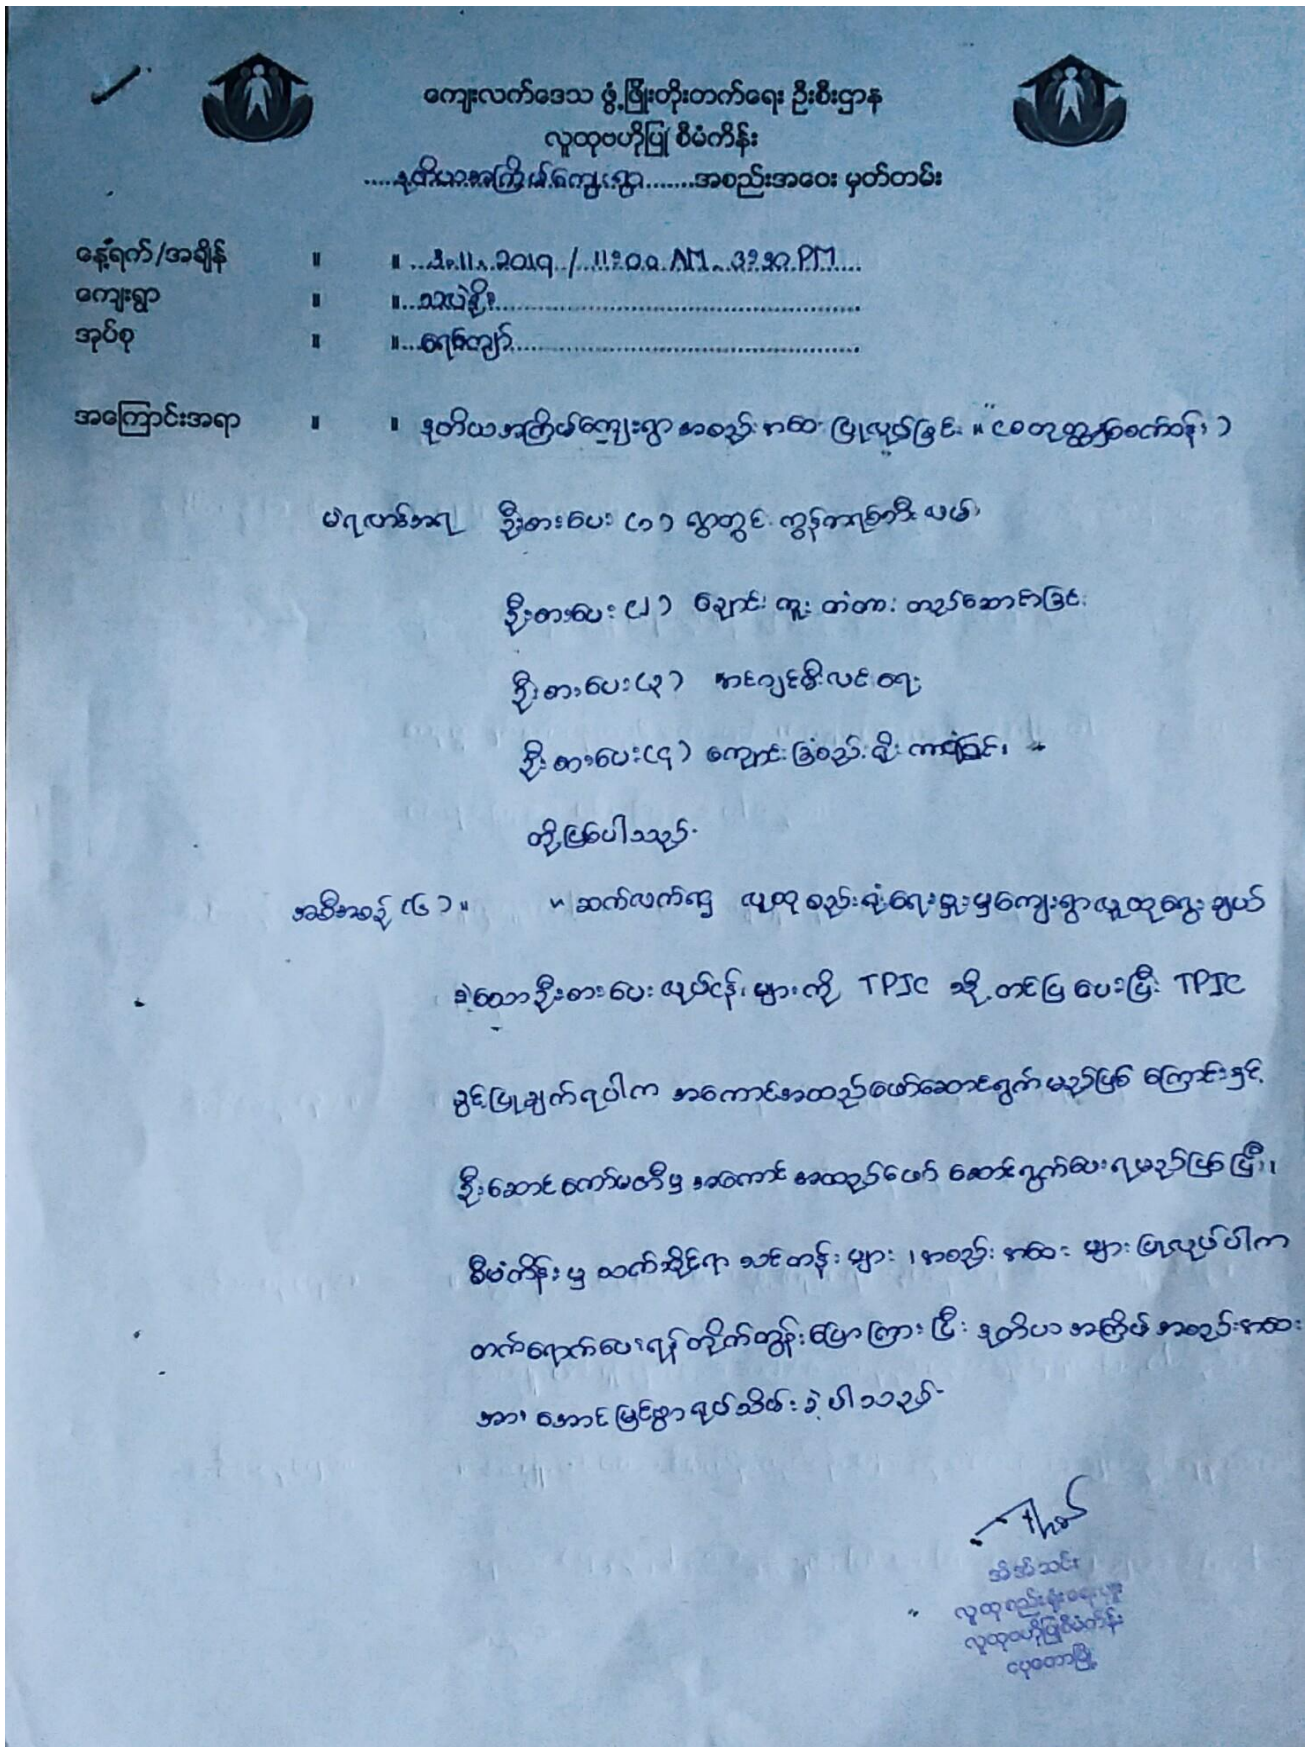 ကျေးလက်ဒေသ ဖွံ့ဖြိုးတိုးတက်ရေး ဦးစီးဌာန
လူထုဗဟိုပြု စီမံကိန်း
.....ဒုတိယအကြိမ်ကျေးရွာ.......အစည်းအဝေး မှတ်တမ်း
နေ့ရက်/အချိန် ။ ။ ...2.11.2019../..11:00 AM...3:30.PM....
ကျေးရွာ ။ ။
အုပ်စု ။ ။....ရေကျော်....
အကြောင်းအရာ ။ ။ ဒုတိယအကြိမ်ကျေးရွာ အစည်းအဝေး ပြုလုပ်ခြင်း ။ (စတုတ္ထနှစ်စက်ဝန်း)
မဲရလဒ်အရ ဦးစားပေး (၁) ရွာတွင်း ကွန်ကရစ်
ဦးစားပေး (၂) ချောင်းကူး တံတား တည်ဆောက်ခြင်း
ဦးစားပေး (၃) လင်းရေး
ဦးစားပေး (၄) ကျောင်းခြံစည်းရိုး ကာရံခြင်း ။
တို့ဖြစ်ပါသည်-
အစီအစဉ် (၆) ။ ။ ဆက်လက်၍ လူထုစည်းရုံးရေးမှူးမှကျေးရွာလူထုရွေးချယ်
ခဲ့သောဦးစားပေး လုပ်ငန်းများကို TPIC သို့ တင်ပြပေးပြီး TPIC
ခွင့်ပြုချက်ရပါက အကောင်အထည်ဖော်ဆောင်ရွက်မည်ဖြစ်ကြောင်းနှင့်
ဦးဆောင်ကော်မတီမှ အကောင်အထည်ဖော် ဆောင်ရွက်ပေးရမည်ဖြစ်ပြီး၊
စီမံကိန်းမှ သက်ဆိုင်ရာ သင်တန်းများ ၊ အစည်းအဝေးများပြုလုပ်ပါက
တက်ရောက်ပေးရန် တိုက်တွန်းပြောကြားပြီး ဒုတိယအကြိမ် အစည်းအဝေး
အား အောင်မြင်စွာ ရုပ်သိမ်းခဲ့ပါသည်-
အိအိသင်း
လူထုစည်းရုံးရေးမှူး
လူထုဗဟိုပြုစီမံကိန်း
ငပုတောမြို့